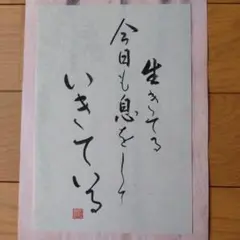 生きてる
今日も息をして
いきている